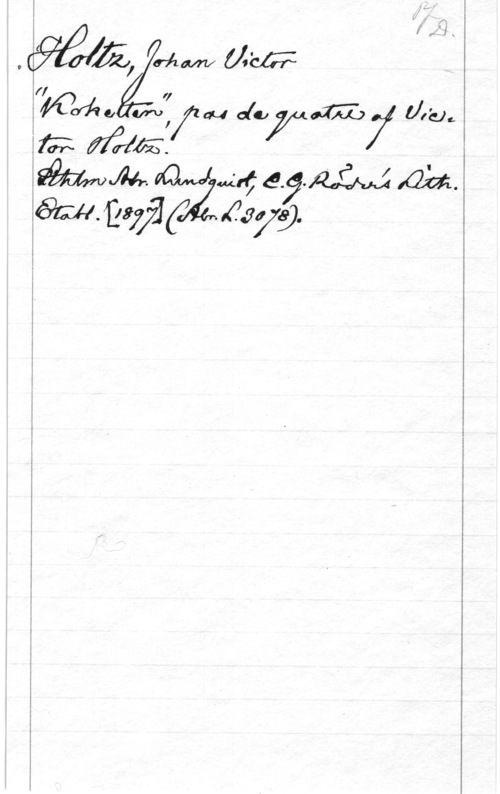 Holtz, Johan Victor
"Koketten", pas de quatre af Vic-
tor Holtz.
Sthlm Abr. Lundquist, C.G. Röder's Lith.
Etabl. [1897] (Abr. L. 3078).